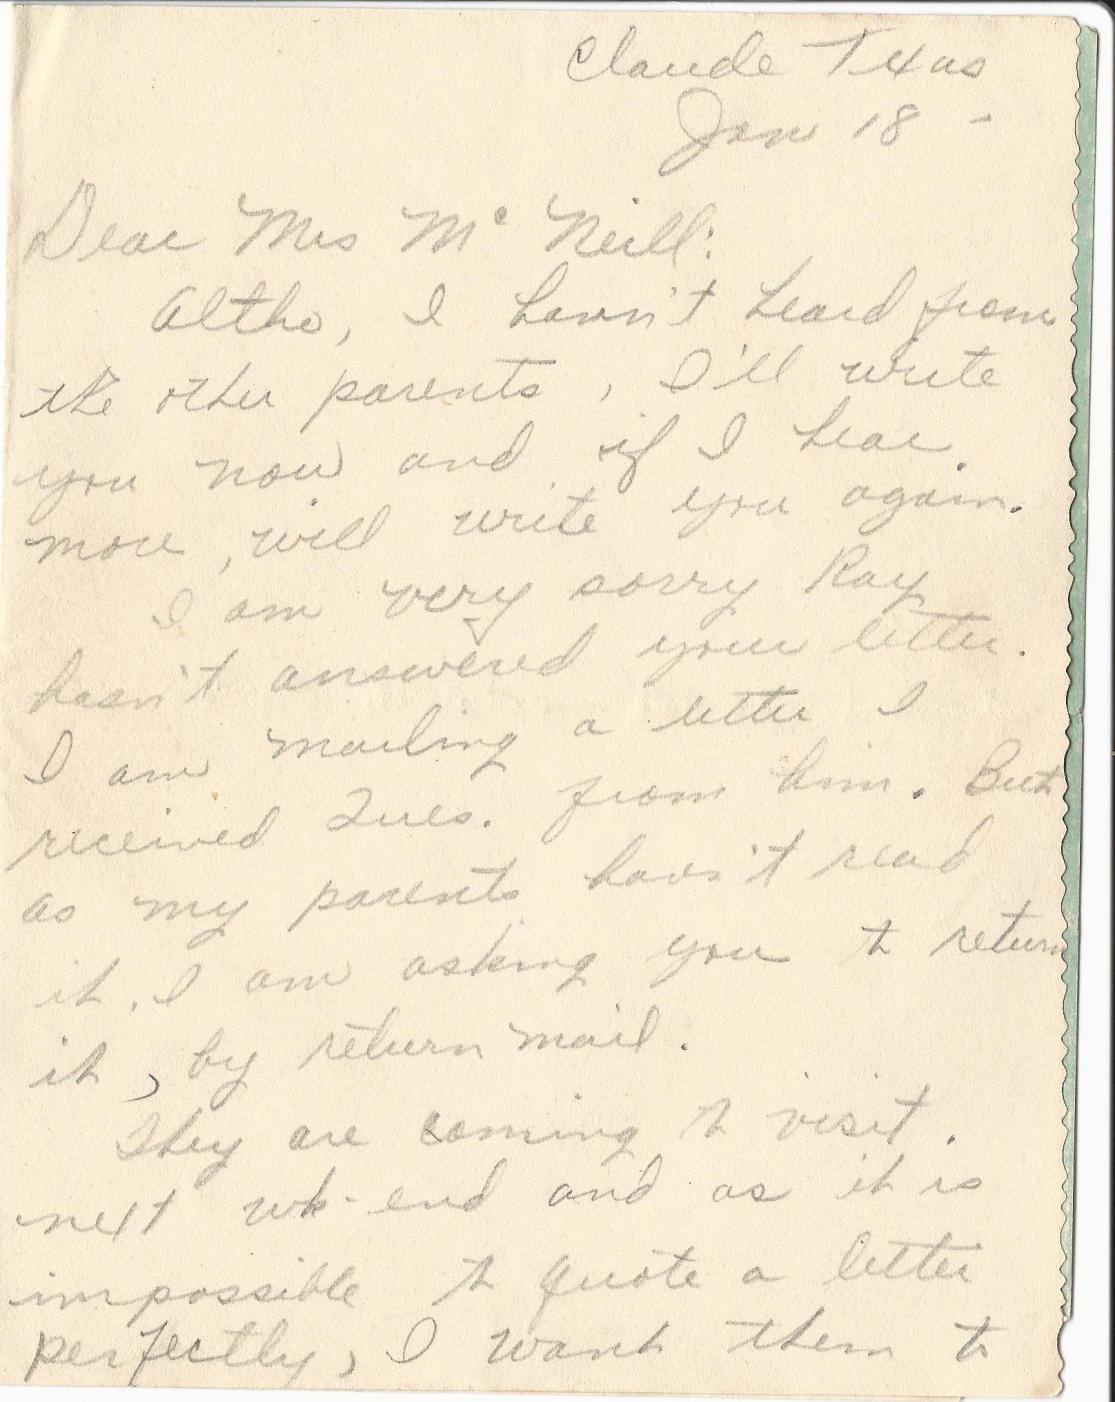 Claude Texas
Jan 18 -
Dear Mrs McNeill:
Altho, I havn't heard from
the other parents, I'll write
you now and if I hear
more, will write you again.
I am very sorry Ray
hasn't answered your letter.
I am mailing a letter I
received Tues. from him. But
as my parents havn't read
it, I am asking you to return
it, by return mail.
They are coming to visit.
next wk-end and as it is
impossible to quote a letter
perfectly, I want them to